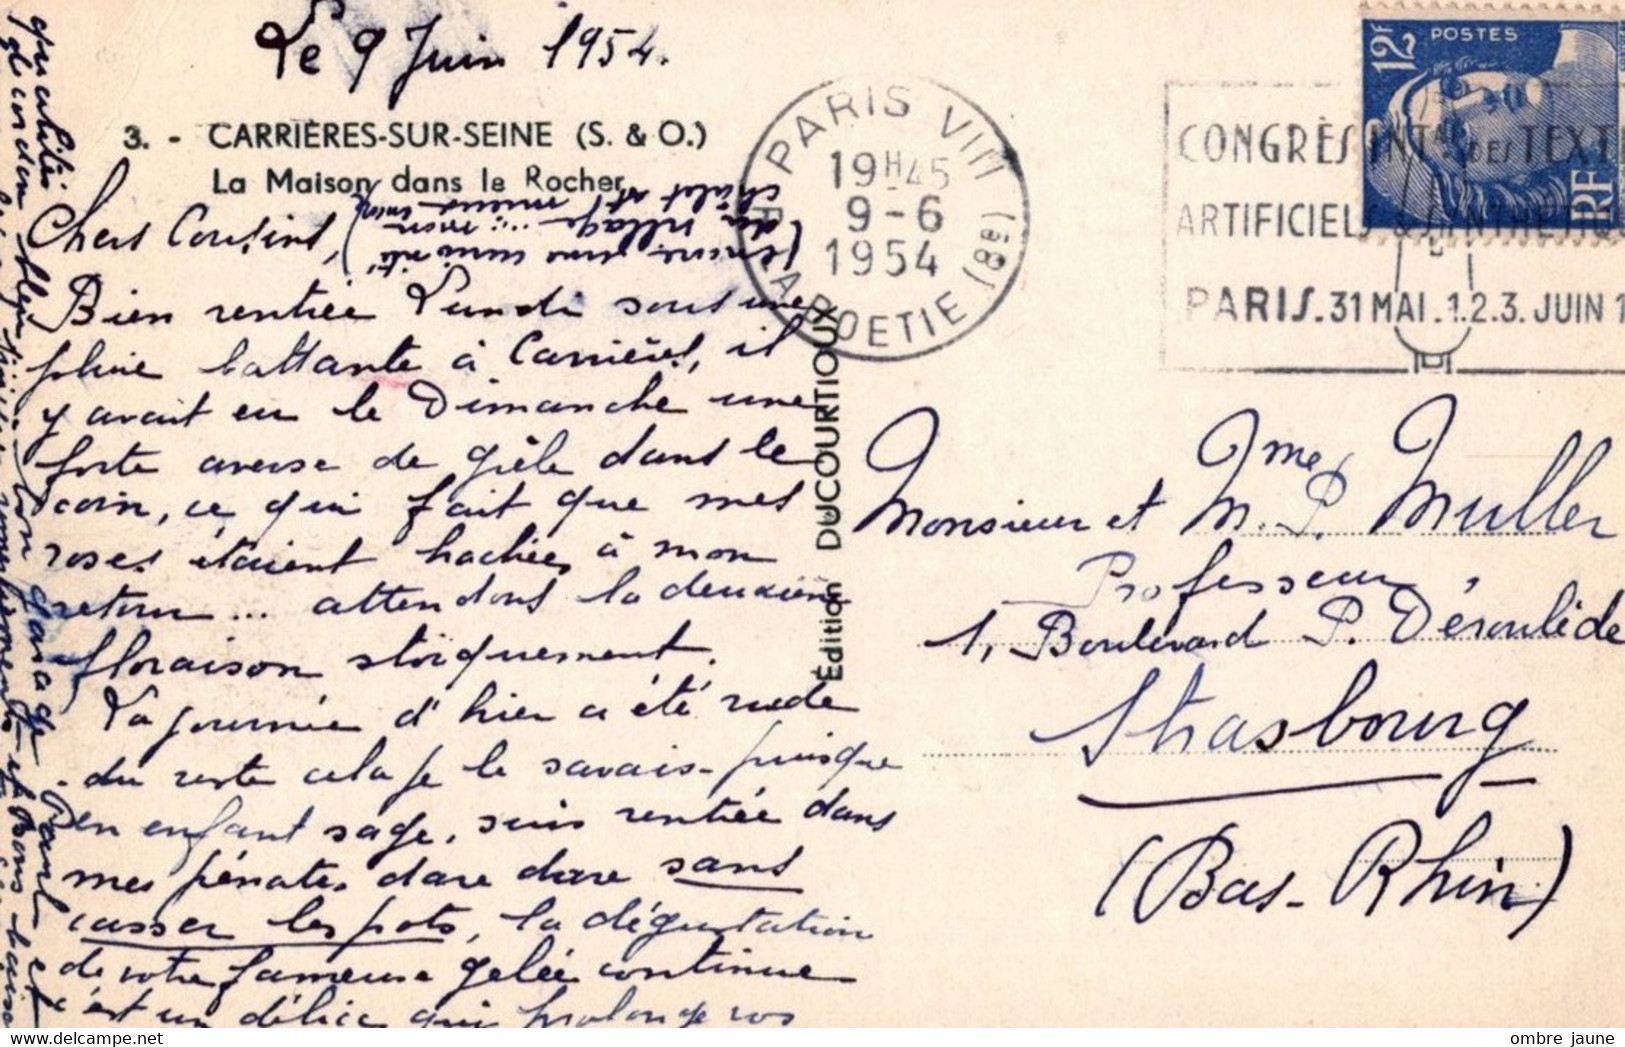 Le 9 Juin 1954.
3. - CARRIÈRES-SUR-SEINE (S. & O.)
La Maison dans le Rocher
(encore une curiosité
du village ... mon
chalet est mieux
Chers Cousins,
Bien rentrée Lundi sous une
pluie battante à Carrières, il
y avait eu le Dimanche une
forte averse de grêle dans le
coin, ce qui fait que mes
roses étaient hachées à mon
retour ... attendons la deuxième
floraison stoïquement.
La journée d'hier a été rude
du reste cela je le savais - puisque
en enfant sage, suis rentrée dans
mes pénates dare dare sans
casser les pots, la dégustation
de votre fameuse gelée continue
c'est un délice qui prolonge vos
qualités
de cordon bleu
bon
Paul et
bons baisers
Édition DUCOURTIOUX
PARIS VIII
19H45
9 - 6
1954
R. LA BOETIE (8e)
12F
POSTES
RF
CONGRÈS INTAL DES TEXTI
ARTIFICIELS & SYNTHETIQU
PARIS. 31 MAI. 1.2.3. JUIN 1
Monsieur et Mme P. Muller
Professeur
1, Boulevard P. Déroulède
Strasbourg
(Bas-Rhin)
ombre jaune